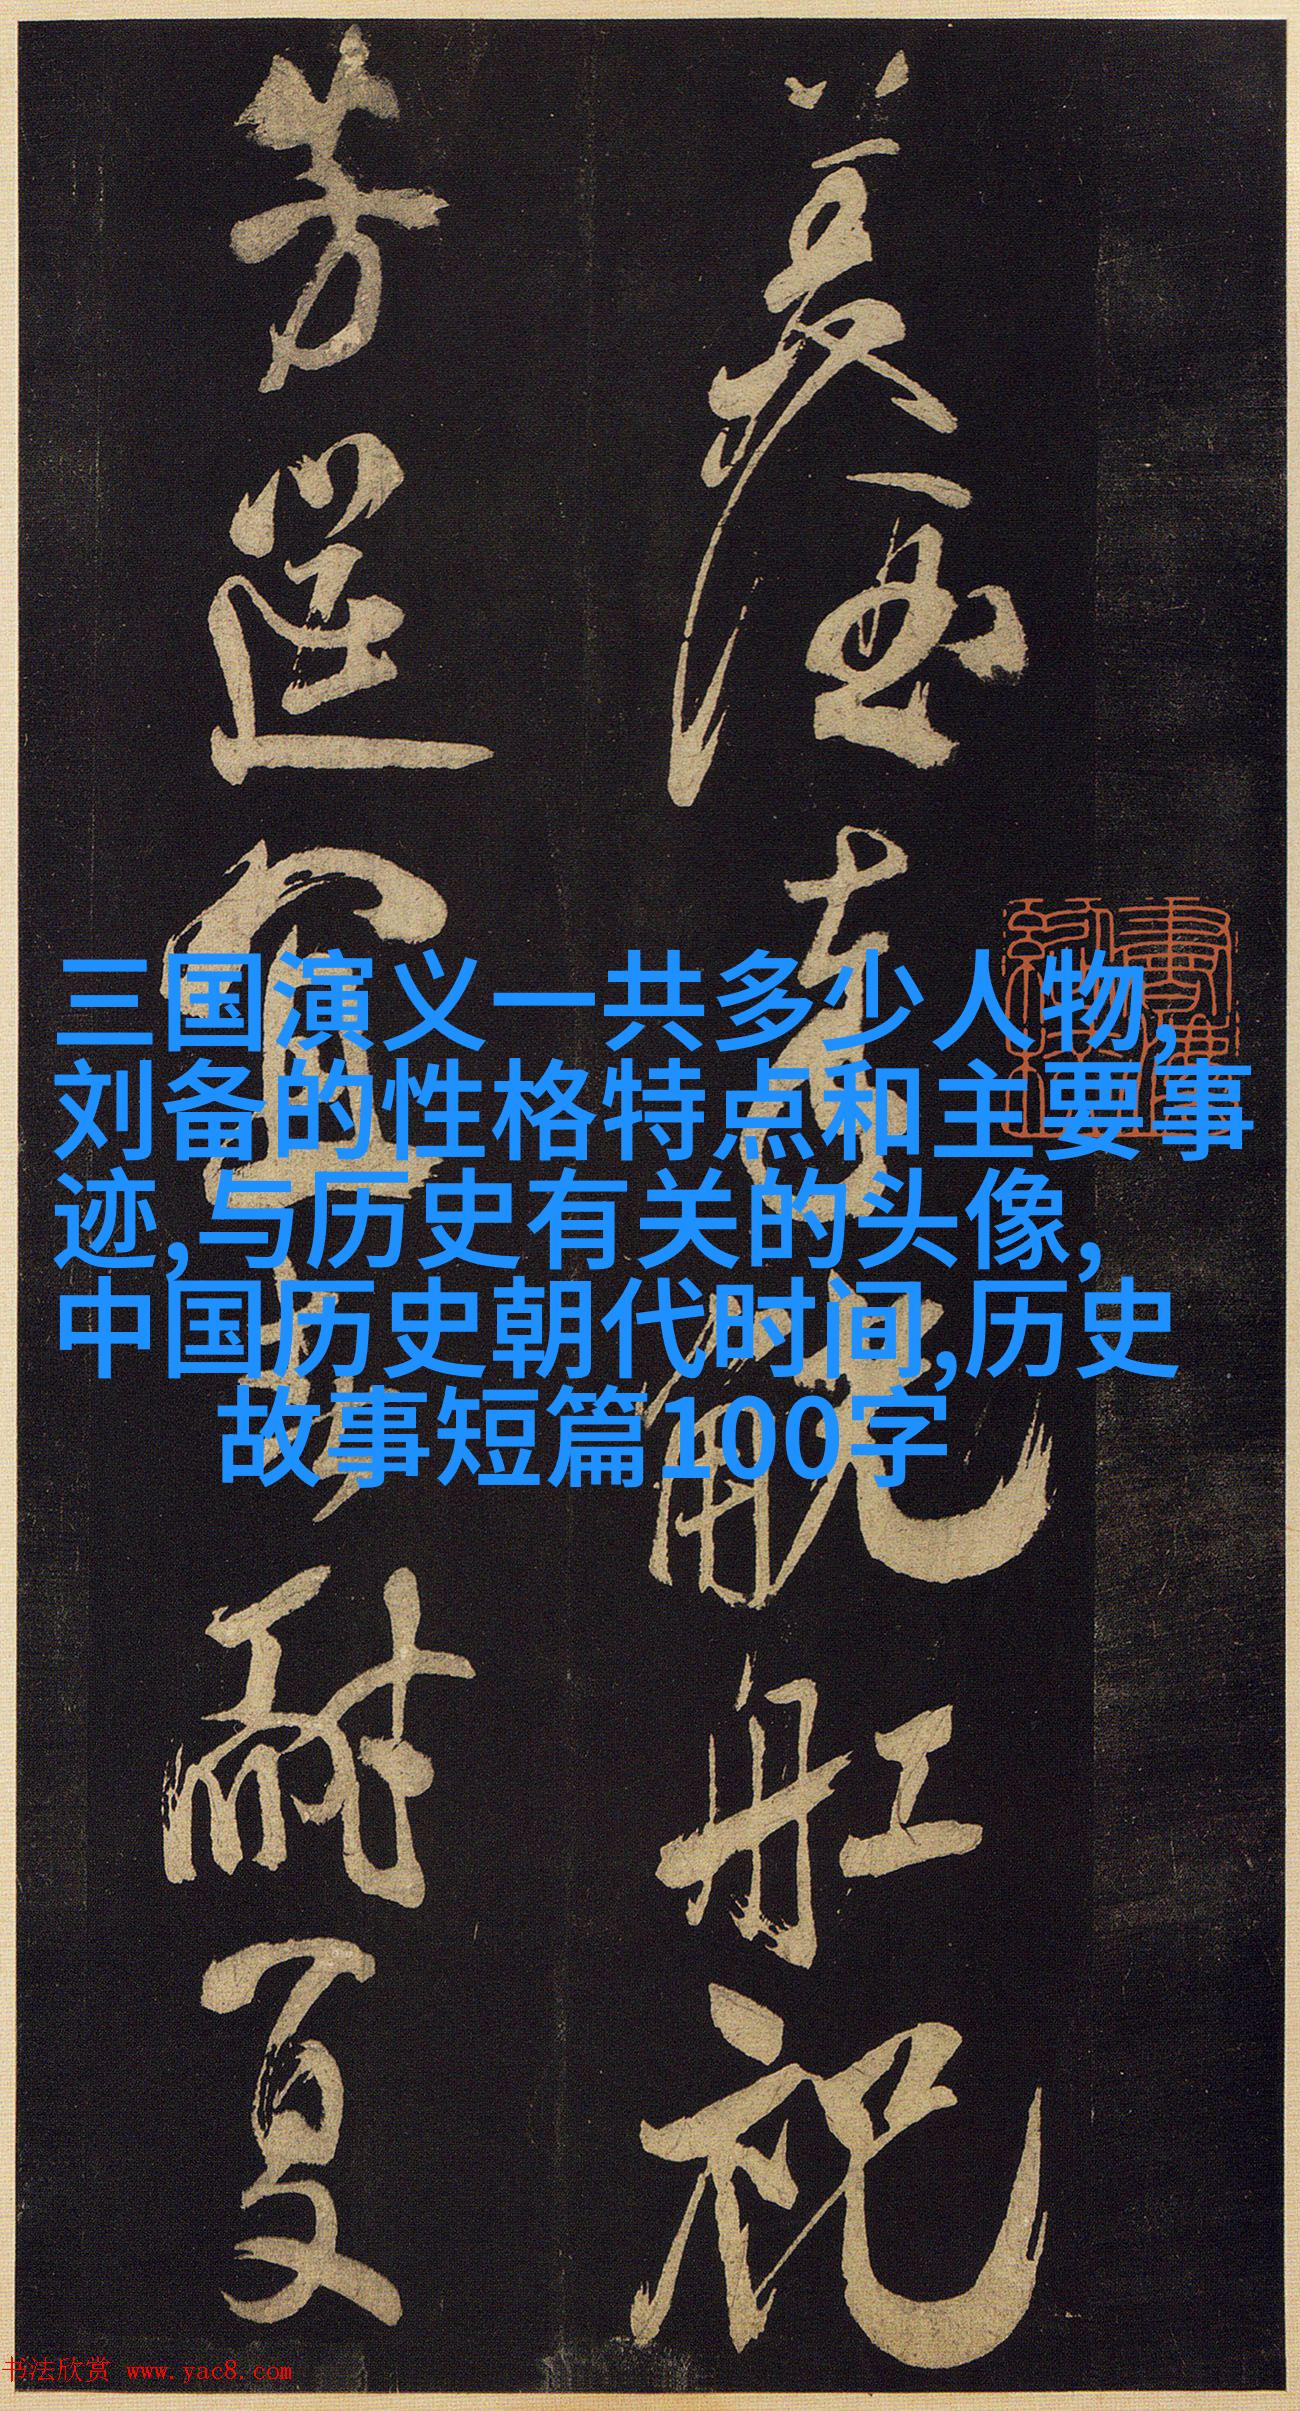 美酒清觥舡祝
芳筵宜
耐夏
三国演义一共多少人物,
刘备的性格特点和主要事
迹,与历史有关的头像,
中国历史朝代时间,历史
故事短篇100字
书法欣赏 www.yac8.com